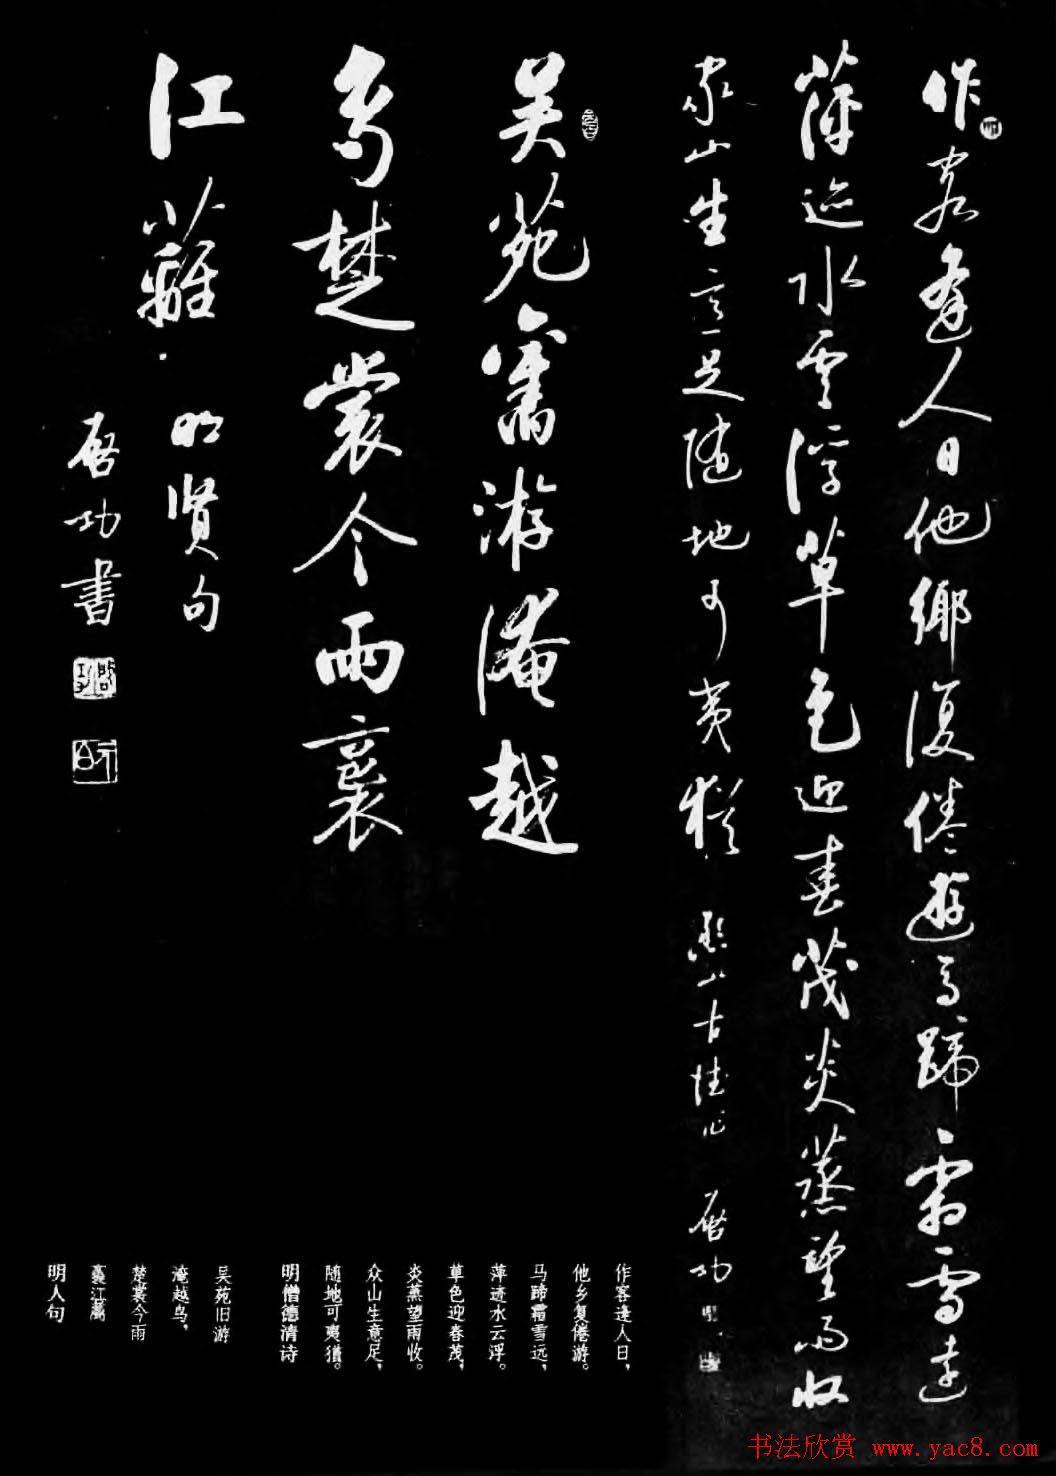 作客逢人日他鄉復倦遊馬蹄霜雪遠
萍迹水雲浮草色迎春茂炎蒸望雨收
眾山生意足隨地可夷猶 憨山古德 启功
吳苑舊游淹越
鳥楚裳今雨
江蘺 明賢句
启功書
作客逢人日，
他乡复倦游。
马蹄霜雪远，
萍迹水云浮。
草色迎春茂，
炎蒸望雨收。
众山生意足，
随地可夷犹。
明僧德清诗
吴苑旧游
淹越鸟，
楚裳今雨
江蓠
明人句
书法欣赏 www.yac8.com